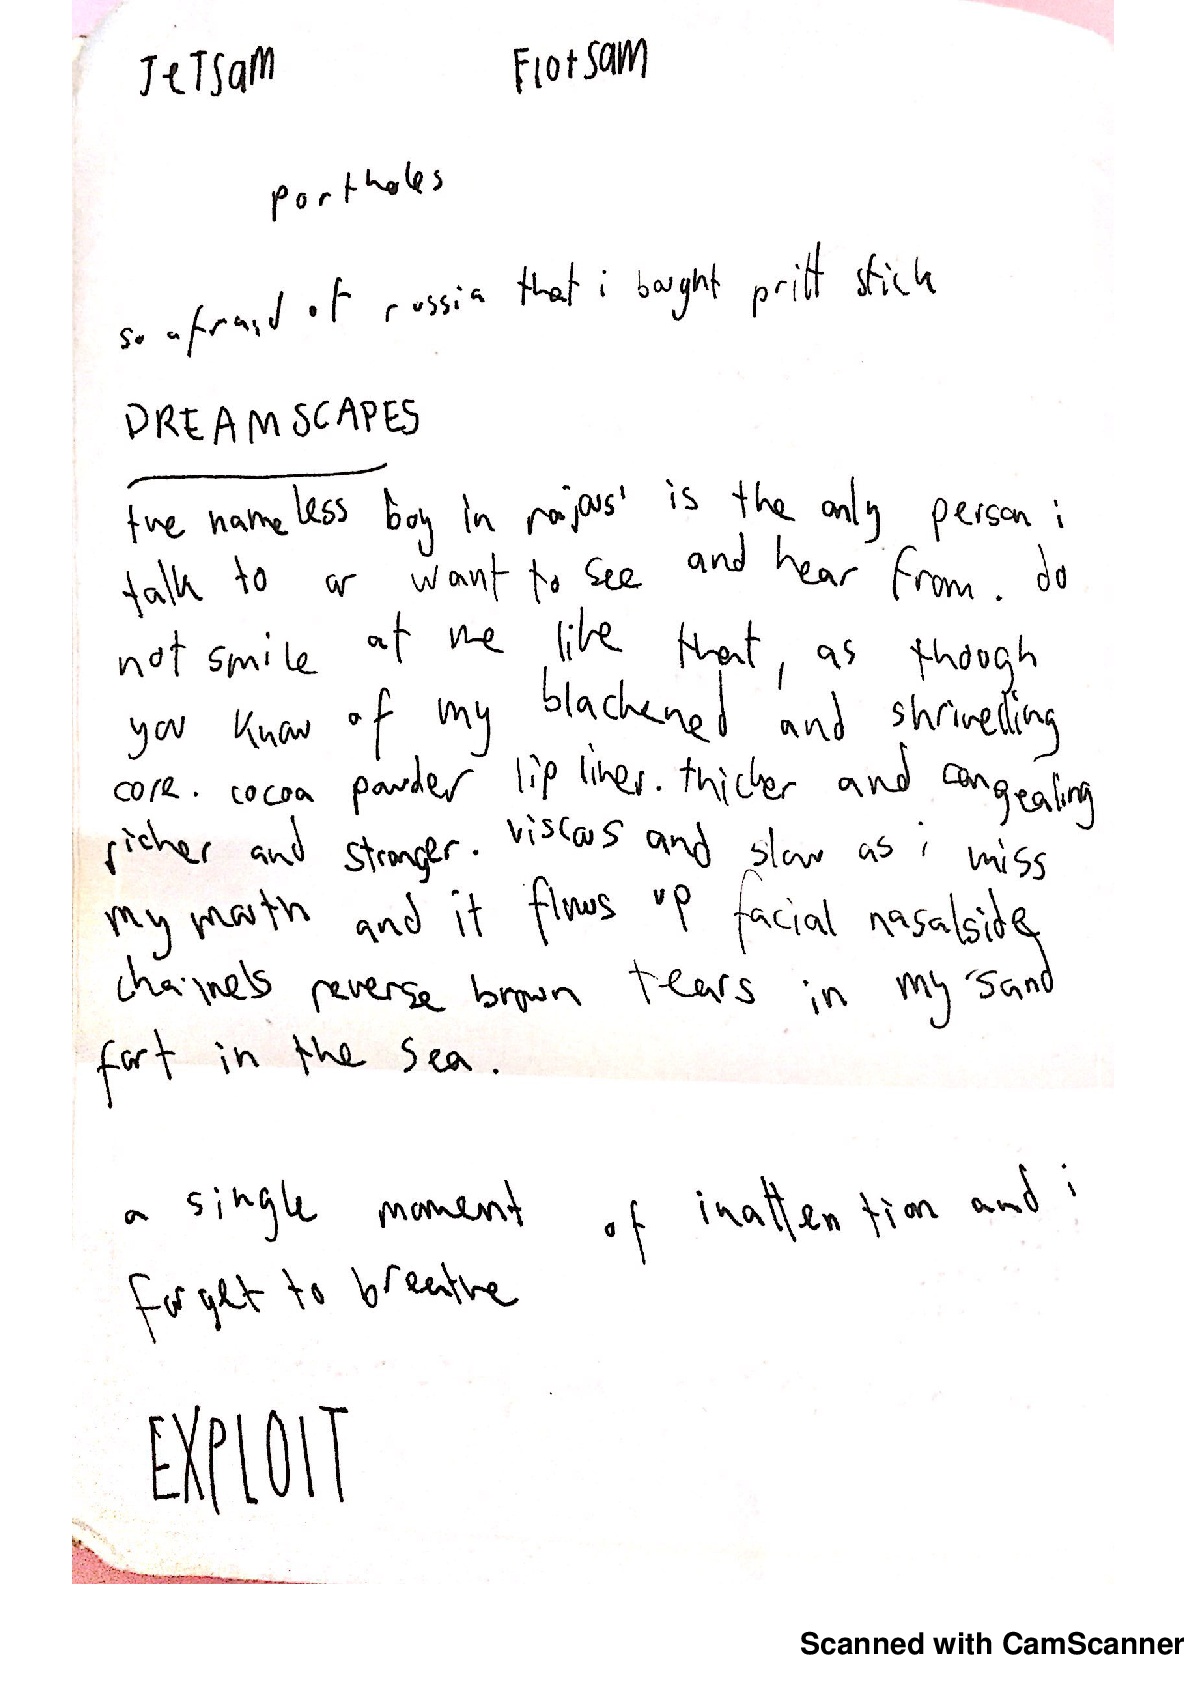 JeTSam Flotsam
portholes
so afraid of russia that i bought pritt stick
DREAMSCAPES
the nameless boy in rajavs' is the only person i
talk to or want to see and hear from. do
not smile at me like that, as though
you know of my blackened and shrivelling
core. cocoa powder lip liner. thicker and congealing
richer and stronger. viscous and slow as i miss
my mouth and it flows up facial nasalside
channels reverse brown tears in my sand
fort in the sea.
a single moment of inattention and i
forget to breathe
EXPLOIT
Scanned with CamScanner